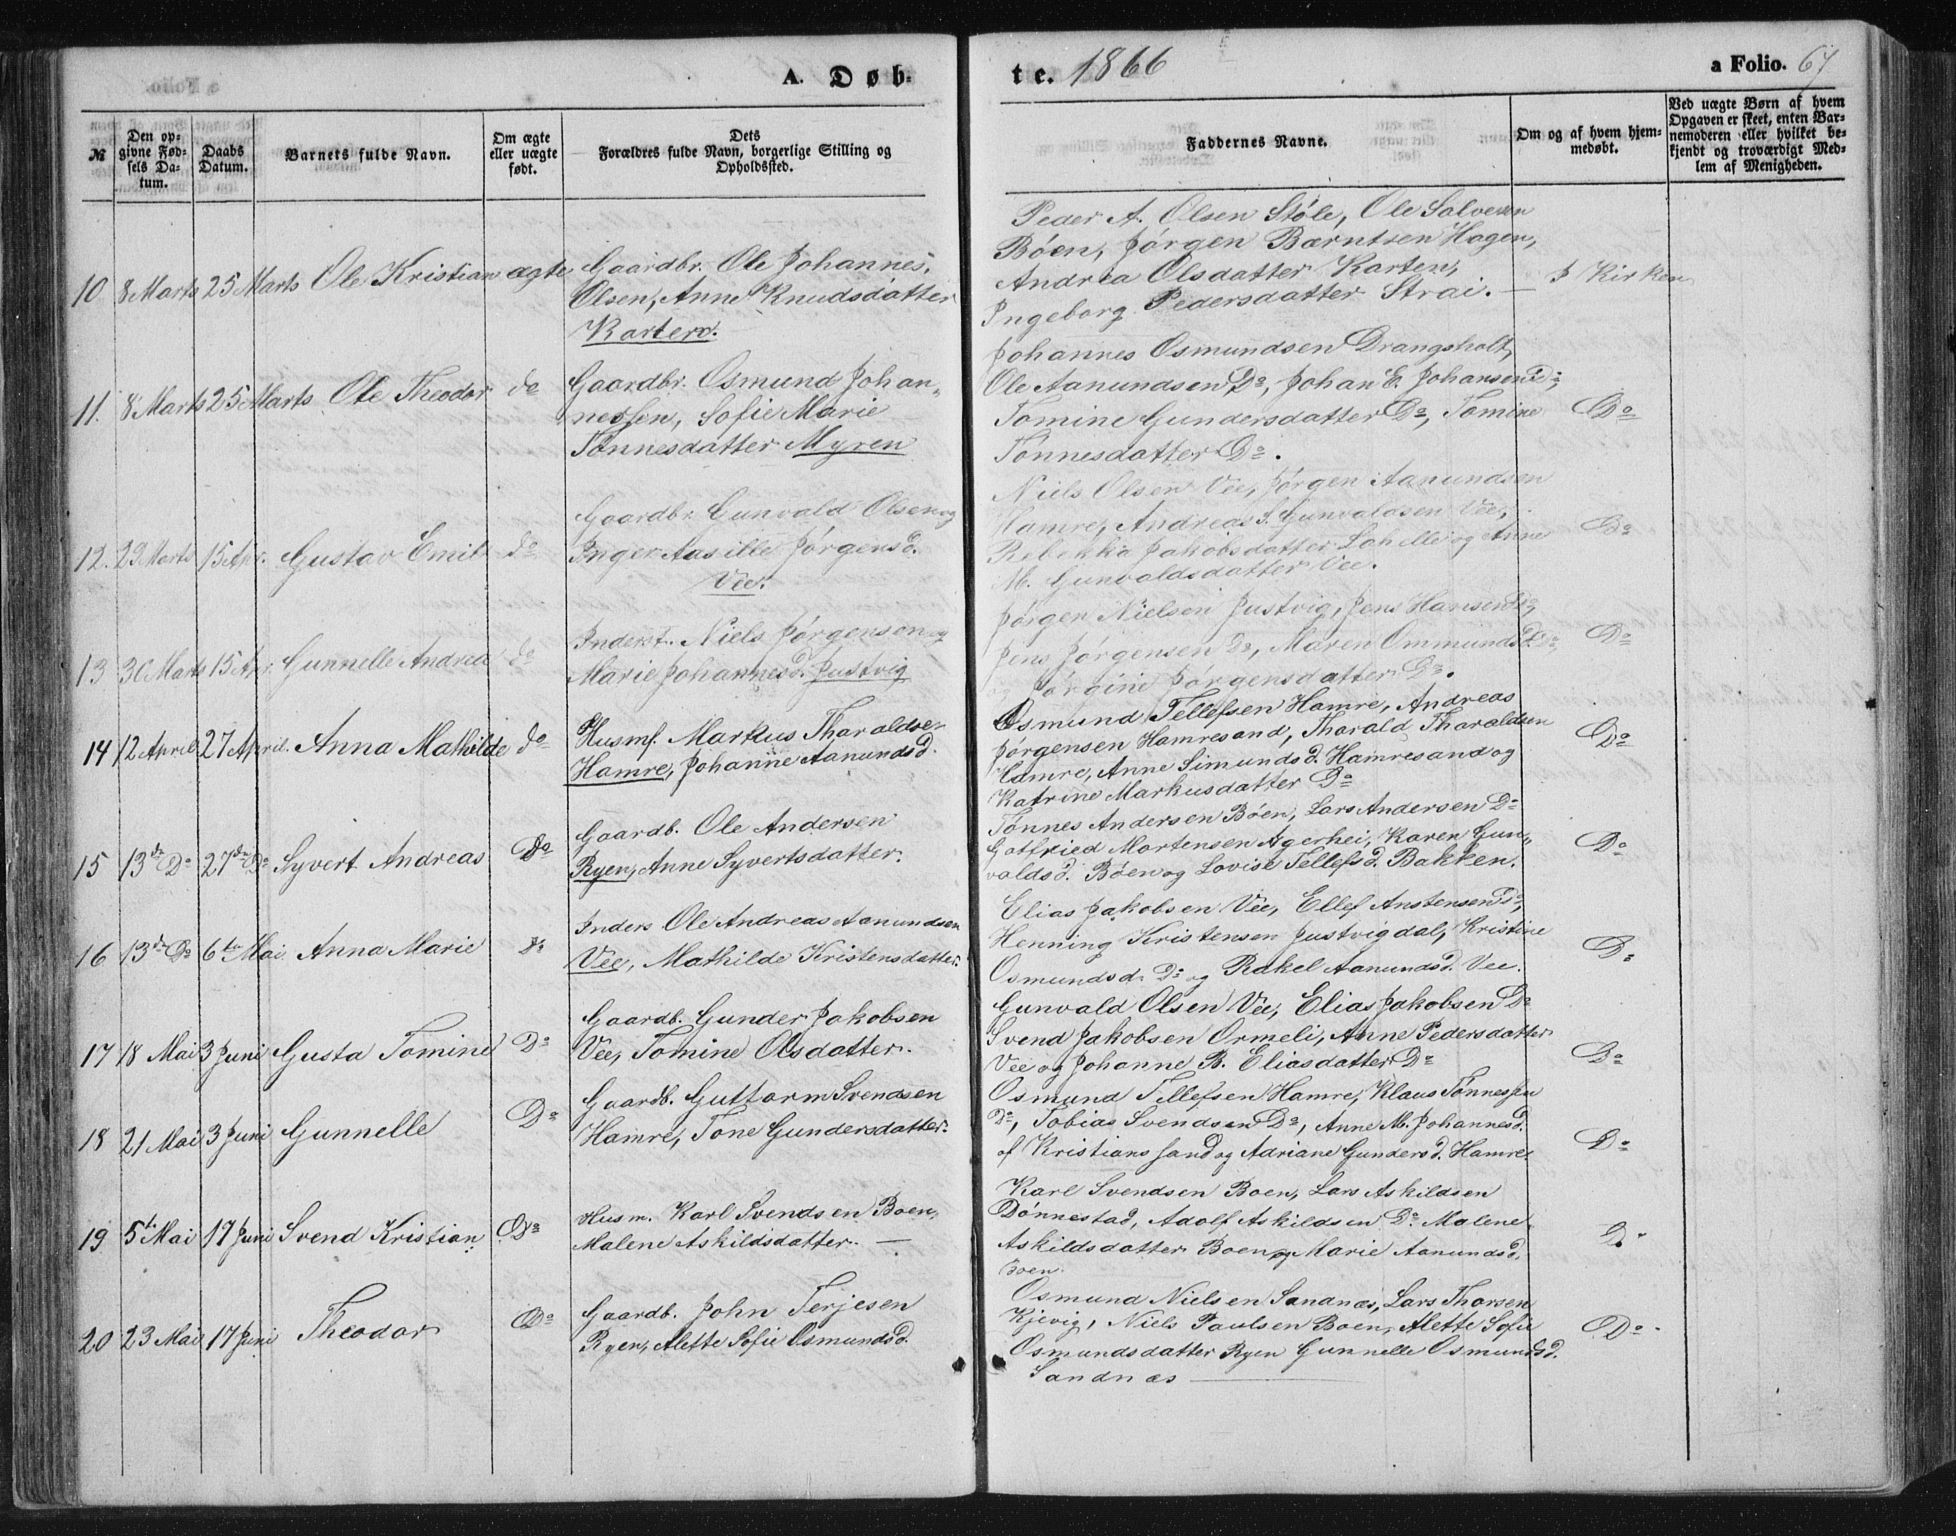 A. Døb-
te. 1866
a Folio. 67
№
Den op-
givne Fød-
sels Da-
tum.
Daabs
Datum.
Barnets fulde Navn.
Om ægte
eller uægte
født.
Dets
Forældres fulde Navn, borgerlige Stilling og
Opholdssted.
Faddernes Navne.
Om og af hvem hjem-
medøbt.
Ved uægte Børn af hvem
Opgaven er skeet, enten Bar-
nemoderen eller hvilket be-
kjendt og troværdigt Med-
lem af Menigheden.
10 8 Marts 25 Marts Ole Kristian ægte
Gaardbr. Ole Johannes.
Olsen, Anne Knudsdatter
Karten.
Peder A. Olsen Støle, Ole Salvesen
Bøen, Jørgen Bærntsen Hagen,
Andrea Olsdatter Karten,
Ingeborg Pedersdatter Strai. —
I Kirken
11. 8 Marts 25 Marts Ole Theodor do
Gaardbr. Osmund Johan-
nessen, Sofie Marie
Tønnesdatter Myren
Johannes Osmundsen Drangsholt,
Ole Aanundsen Do, Johan E. Johansen Do,
Tomine Gundersdatter Do, Tomine
Tønnesdatter Do.
Do
12. 29 Marts 15 Apr. Gustav Emil do
Gaardbr. Gunvald Olsen og
Inger Aasille Jørgensd.
Vee.
Niels Olsen Vee, Jørgen Aanundsen
Hamre, Andreas S. Gunvaldsen Vee,
Rebekka Jakobsdatter Lahelle og Anne
M. Gunvaldsdatter Vee.
Do
13 30 Marts 15 Apr. Gunnelle Andrea do
Inderst. Niels Jørgensen og
Marie Johannesd. Justvig
Jørgen Nielsen Justvig, Jens Hansen Do,
Jens Jørgensen Do, Maren Ommundsd. Do,
og Jørgine Jørgensdatter Do.
Do
14 12 April 27 April. Anna Mathilde do
Husmf. Markus Tharaldse-
Hamre, Johanne Aanundsd.
Osmund Tellefsen Hamre, Andreas
Jørgensen Hamresand, Tharald Tharaldsen
Hamre, Anne Simundsd. Hamresand og
Katrine Markusdatter Do
Do
15 13de Do 27de Do Syvert Andreas Do
Gaardb. Ole Andersen
Ryen, Anne Syvertsdatter.
Tønnes Andersen Bøen, Lars Andersen Do
Gothfried Mortensen Agerhei, Karen Gun-
valdsd. Bøen og Lovise Tellefsd. Bakken.
Do
16 13de Do 6te Mai Anna Marie do
Inders Ole Andreas Aanundsen
Vee, Mathilde Kristensdatter.
Elias Jakobsen Vee, Ellef Anstensen Do,
Henning Kristensen Justvigdal, Kristine
Osmundsd. Do og Rakel Aanundsd. Vee.
Do
17 18 Mai 3 Juni Gusta Tomine Do
Gaardb. Gunder Jakobsen
Vee, Tomine Olsdatter.
Gunvald Olsen Vee, Elias Jakobsen Do
Svend Jakobsen Ormeli, Anne Pedersdatter
Vee og Johanne B. Eliasdatter Do
Do
18 21 Mai 3 Juni Gunnelle Do
Gaardb. Guttorm Svendsen
Hamre, Tone Gundersdatter.
Osmund Tellefsen Hamre, Klaus Tønnessen
Do, Tobias Svendsen Do, Anne M. Johannesd.
af Kristianssand og Adriane Gundersd. Hamre.
Do
19 5te Mai 17 Juni Svend Kristian Do
Husm. Karl Svendsen Boen,
Malene Askildsdatter. —
Karl Svendsen Boen, Lars Askildsen
Dønnestad, Adolf Askildsen Do. Malene
Askildsdatter Boen og Marie Aanundsd.
Boen.
Do
20 23 Mai 17 Juni Theodor Do
Gaardb. John Terjesen
Ryen, Alette Sofie Osmundsd.
Osmund Nielsen Sandnæs, Lars Thorsen
Kjevig, Niels Paulsen Boen, Alette Sofie
Osmundsdatter Ryen Gunnelle Osmundsd.
Sandnæs —
Do.